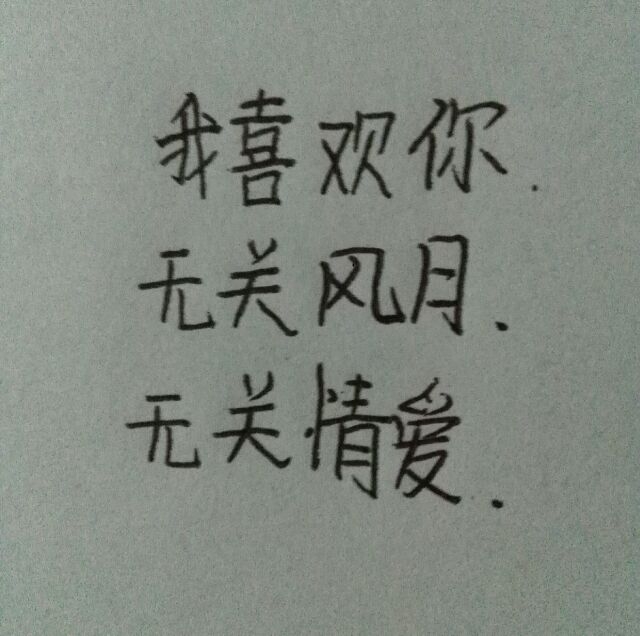 我喜欢你.
无关风月.
无关情爱.